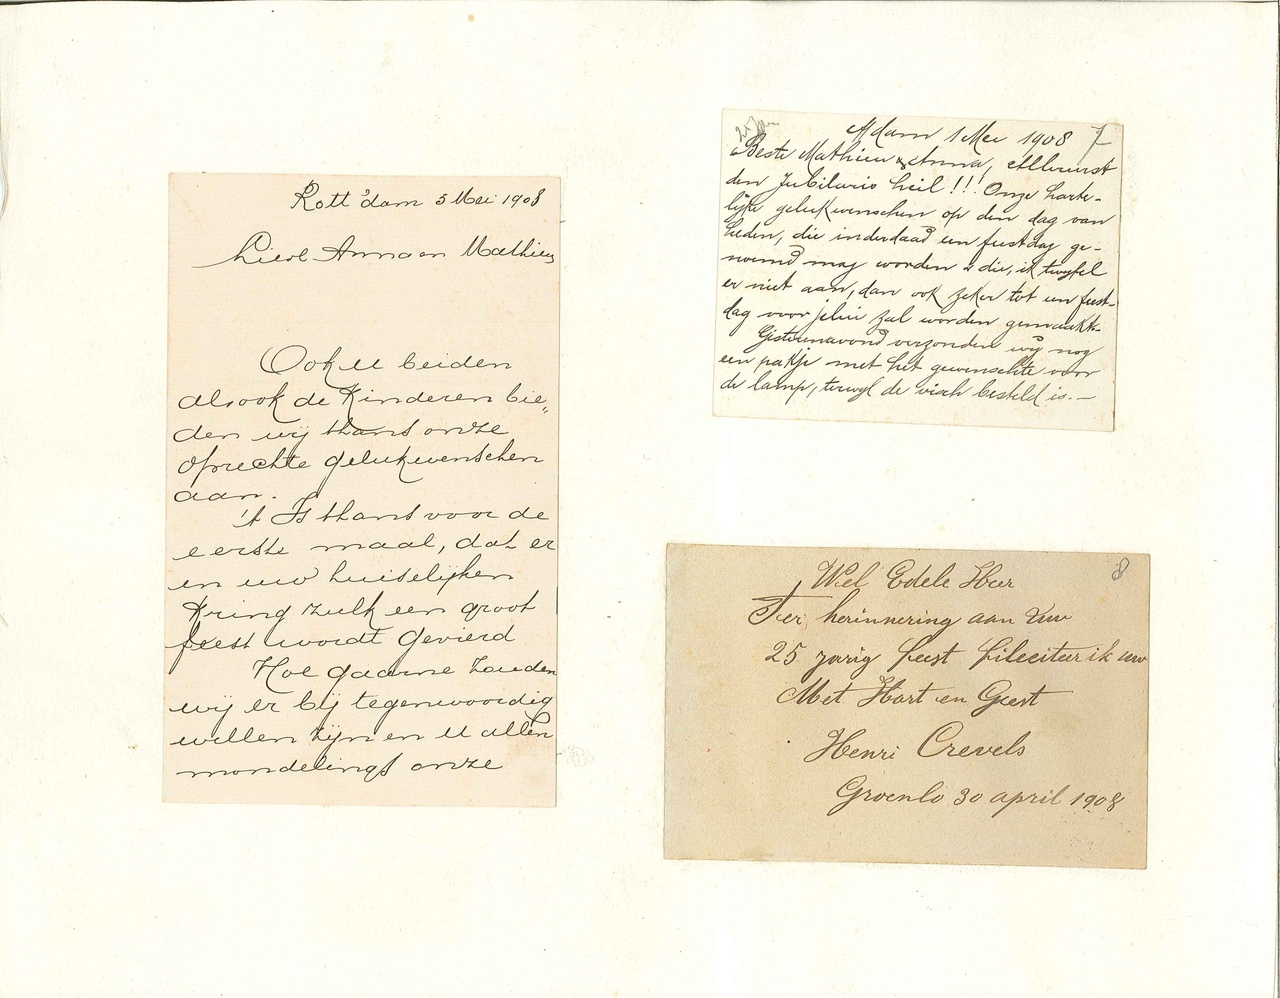 Rott'dam 5 Mei 1908
Lieve Anna en Mathieu
Ook U beiden
alsook de Kinderen bie„
den wij thans onze
oprechte gelukwenschen
aan.
't Is thans voor de
eerste maal, dat er
in uw huiselijken
Kring zulk een groot
feest wordt gevierd
Hoe gaarne zouden
wij er bij tegenwoordig
willen zijn en U allen
mondelings onze
A'dam 1 Mei 1908 7
Beste Mathieu & Anna, Allereerst
den Jubilaris heil!!! Onze harte-
lijke gelukwenschen op den dag van
heden, die inderdaad een feestdag ge-
noemd mag worden & die, ik twyfel
er niet aan, dan ook zeker tot een feest-
dag voor jelui zal worden gemaakt.
Gisterenavond verzonden wy nog
een pakje met het gewenschte voor
de lamp, terwyl de visch besteld is.—
8
Wel Edele Heer
Ter herinnering aan Uw
25 jarig feest filiciteer ik uw
Met Hart en Geest
Henri Crevels
Groenlo 30 april 1908